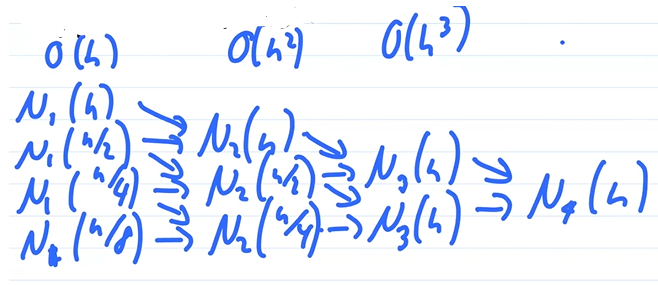 O(h) O(h²) O(h³)
N₁(h)
N₁(h/2) N₂(h)
N₁(h/4) N₂(h/2) N₃(h)
N₁(h/8) N₂(h/4) N₃(h) N₄(h)